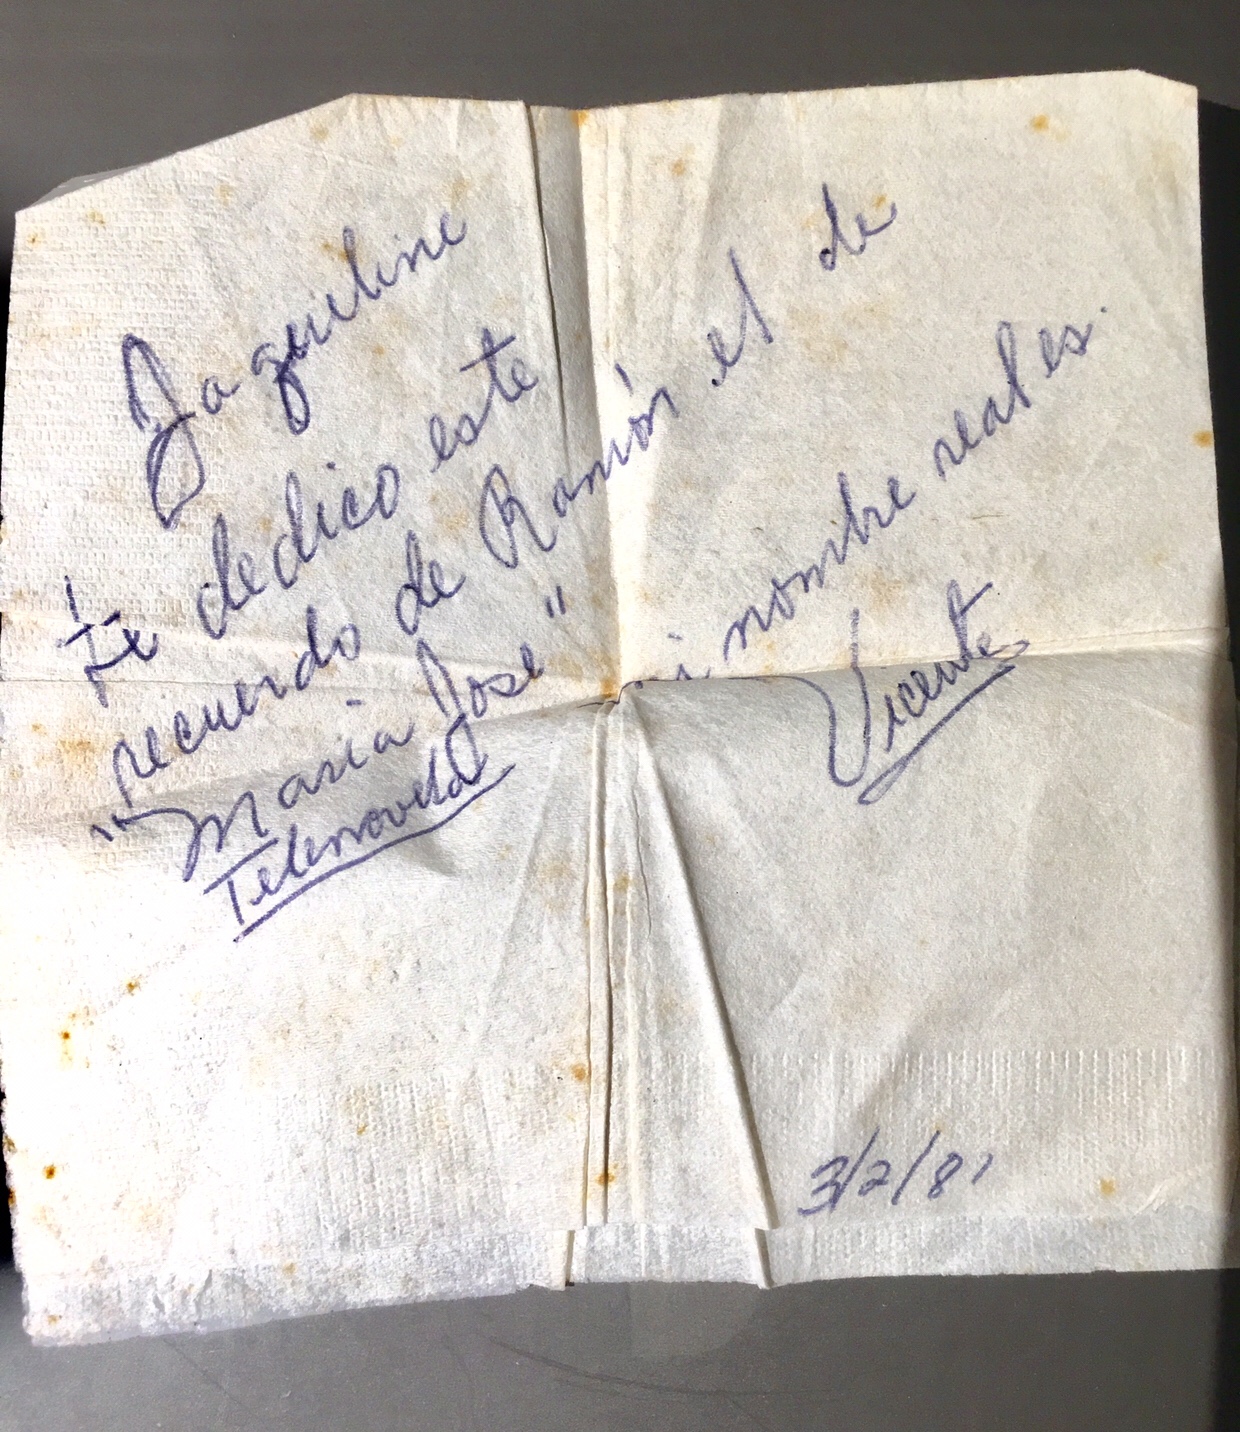 Jaqueline
te dedico este
recuerdo de Ramón el de
"Maria José" mi nombre real es.
Telenovela Vicente
3/2/81